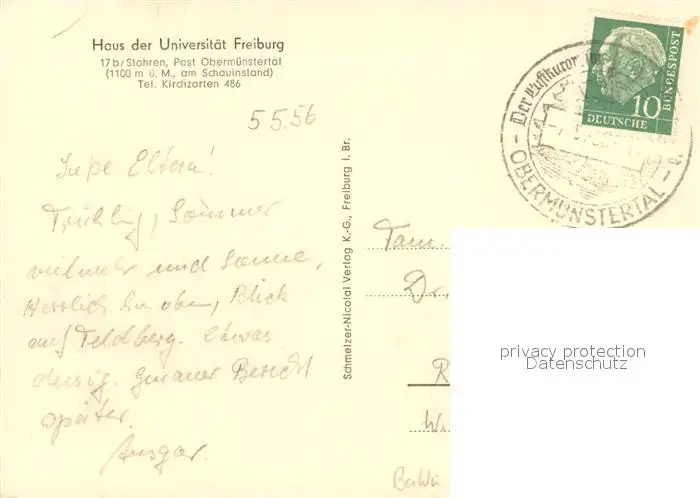 Haus der Universität Freiburg
17b/Stohren, Post Obermünstertal
(1100 m ü. M., am Schauinsland)
Tel. Kirchzarten 486
5 5.56
Eltern!
Frühling, Sommer
und Sonne,
Herrlich hier oben, Blick
auf Feldberg. Etwas
diesig. Genauer Bericht
später.
Ansgar.
Schmelzer-Nicolai Verlag K.-G., Freiburg i. Br.
Fam.
Dr.
R
Wi
Der Luftkurort
OBERMÜNSTERTAL
10
DEUTSCHE
BUNDESPOST
privacy protection
Datenschutz